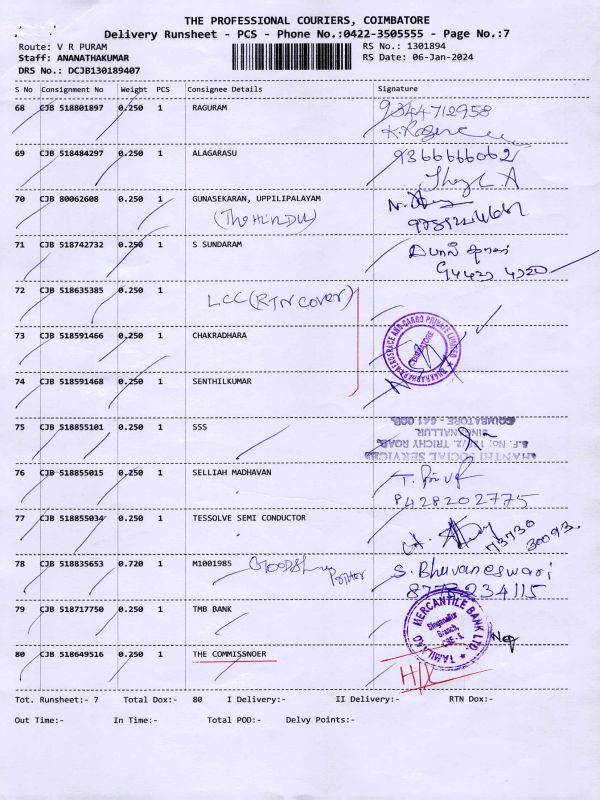 THE PROFESSIONAL COURIERS, COIMBATORE
Delivery Runsheet - PCS - Phone No.:0422-3505555 - Page No.:7
Route: V R PURAM
RS No.: 1301894
Staff: ANANATHAKUMAR
RS Date: 06-Jan-2024
DRS No.: DCJB130189407
S No Consignment No Weight PCS Consignee Details Signature
68 CJB 518801897 0.250 1 RAGURAM 9344712958
69 CJB 518484297 0.250 1 ALAGARASU 9366666062
70 CJB 80062608 0.250 1 GUNASEKARAN, UPPILIPALAYAM
(The HINDU)
71 CJB 518742732 0.250 1 S SUNDARAM
72 CJB 518635385 0.250 1 LCC (RTN COVER)
73 CJB 518591466 0.250 1 CHAKRADHARA
COIMBATORE
74 CJB 518591468 0.250 1 SENTHILKUMAR
75 CJB 518855101 0.250 1 SSS
COIMBATORE - 641 005.
SINGANALLUR,
TRICHY ROAD,
SHANTHI SOCIAL SERVICES
76 CJB 518855015 0.250 1 SELLIAH MADHAVAN
8428202775
77 CJB 518855034 0.250 1 TESSOLVE SEMI CONDUCTOR
73730 30093
78 CJB 518835653 0.720 1 M1001985 S. Bhuvaneswari
79 CJB 518717750 0.250 1 TMB BANK
TAMILNAD MERCANTILE BANK LTD.
Singanallur
Branch,
CBE - 5
80 CJB 518649516 0.250 1 THE COMMISSNOER
Tot. Runsheet:- 7 Total Dox:- 80 I Delivery:- II Delivery:- RTN Dox:-
Out Time:- In Time:- Total POD:- Delvy Points:-